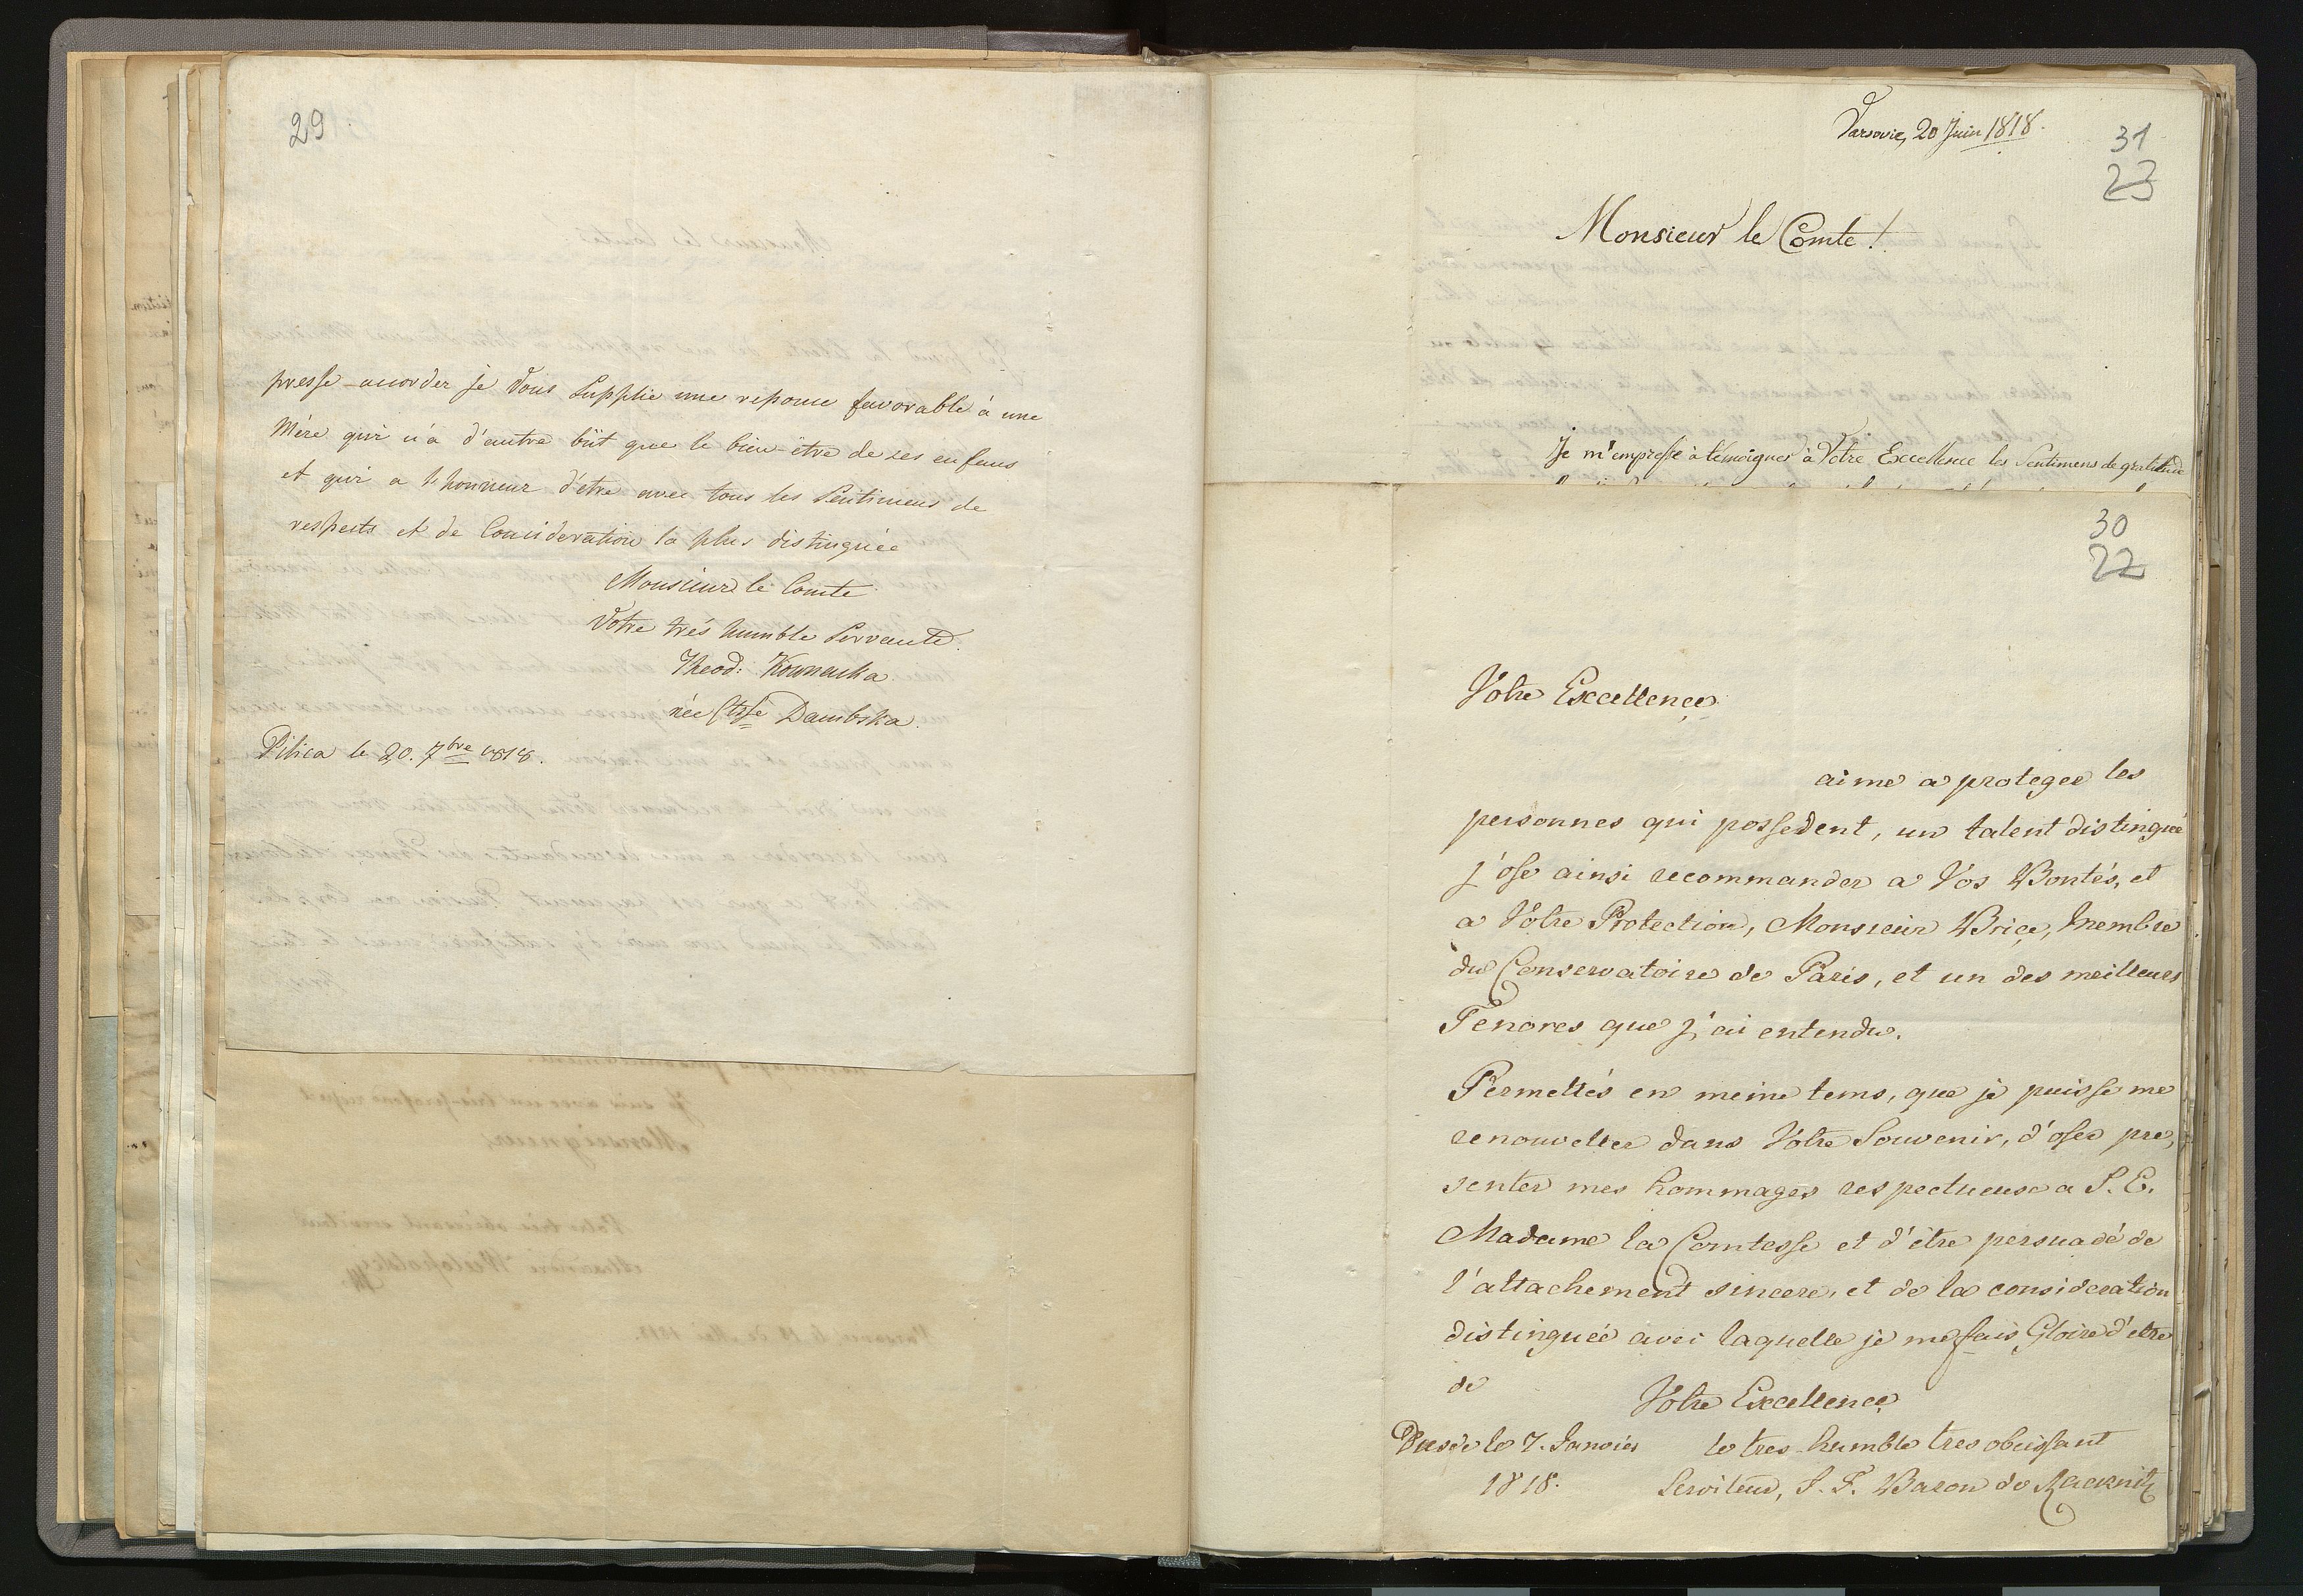 29
presse-accorder je Vous Supplie une reponse favorable à une
Mère qui n'a d'autre bût que le bien-être de ses enfans
et qui a l'honneur d'etre avec tous les Sentimens de
respects et de Consideration la plus distinguée
Monsieur le Comte
Votre trés humble Servante.
Theod: Kownacka
née Ctsse Dambska.
Pilica le 20. 7bre 1818.
Varsovie, 20 Juin 1818.
31
23
Monsieur le Comte!
Je m'empresse à témoigner à Votre Excellence les Sentimens de gratitude
30
22
Votre Excellence
aime a proteger les
personnes qui possedent, un talent distingué
j'ose ainsi recommander a Vos Bontés, et
a Votre Protection, Monsieur Brice, Membre
du Conservatoire de Paris, et un des meilleurs
Tenores que j'ai entendu.
Permettés en meme tems, que je puisse me
renouveller dans Votre Souvenir, d'oser pre,
senter mes hommages respectueuse a S. E.
Madame la Comtesse et d'être persuadé de
l'attachement sincere, et de la consideration
distinguée avec laquelle je me fais Gloire d'etre
de
Votre Excellence
Dresde le 7. Janvier le tres-humble tres obeissant
1818. Serviteur, J. F. Baron de Racknitz